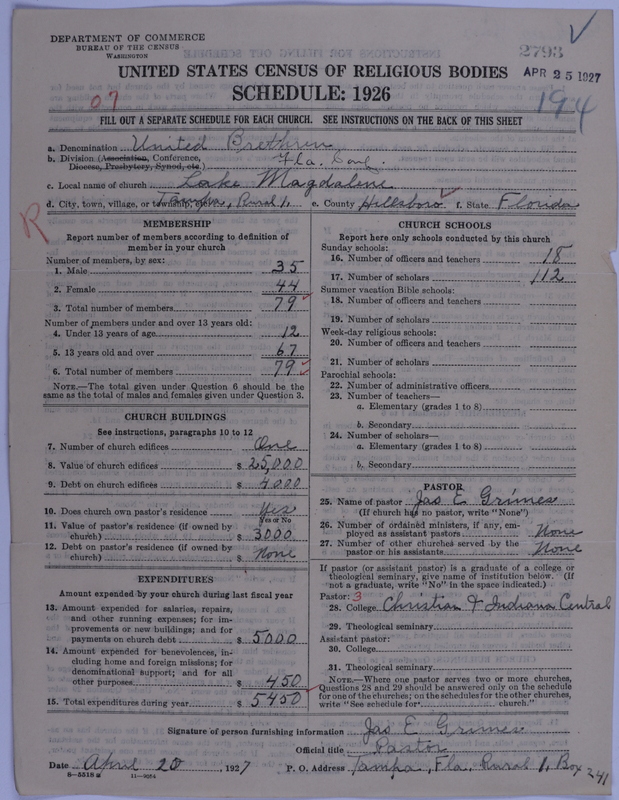 DEPARTMENT OF COMMERCE
BUREAU OF THE CENSUS
WASHINGTON
2793
APR 25 1927
UNITED STATES CENSUS OF RELIGIOUS BODIES
SCHEDULE: 1926
07
194
FILL OUT A SEPARATE SCHEDULE FOR EACH CHURCH. SEE INSTRUCTIONS ON THE BACK OF THIS SHEET
a. Denomination United Brethren
b. Division (Association, Conference, Diocese, Presbytery, Synod, etc.) Fla. Conf.
c. Local name of church Lake Magdalene
d. City, town, village, or township, etc. Tampa, Rural 1. e. County Hillsboro f. State Florida
R
MEMBERSHIP
Report number of members according to definition of
member in your church
Number of members, by sex:
1. Male 35
2. Female 44
3. Total number of members 79
Number of members under and over 13 years old:
4. Under 13 years of age 12
5. 13 years old and over 67
6. Total number of members 79
NOTE.—The total given under Question 6 should be the
same as the total of males and females given under Question 3.
CHURCH BUILDINGS
See instructions, paragraphs 10 to 12
7. Number of church edifices One
8. Value of church edifices $ 25,000
9. Debt on church edifices $ 4000
10. Does church own pastor's residence Yes
Yes or No
11. Value of pastor's residence (if owned by
church) $ 3000
12. Debt on pastor's residence (if owned by
church) $ None
EXPENDITURES
Amount expended by your church during last fiscal year
13. Amount expended for salaries, repairs,
and other running expenses; for im-
provements or new buildings; and for
payments on church debt $ 5000
14. Amount expended for benevolences, in-
cluding home and foreign missions; for
denominational support; and for all
other purposes $ 450
15. Total expenditures during year $ 5450
CHURCH SCHOOLS
Report here only schools conducted by this church
Sunday schools:
16. Number of officers and teachers 18
17. Number of scholars 112
Summer vacation Bible schools:
18. Number of officers and teachers
19. Number of scholars
Week-day religious schools:
20. Number of officers and teachers
21. Number of scholars
Parochial schools:
22. Number of administrative officers
23. Number of teachers—
a. Elementary (grades 1 to 8)
b. Secondary
24. Number of scholars—
a. Elementary (grades 1 to 8)
b. Secondary
PASTOR
25. Name of pastor Jas E. Grimes
(If church has no pastor, write "None")
26. Number of ordained ministers, if any, em-
ployed as assistant pastors None
27. Number of other churches served by the
pastor or his assistants None
If pastor (or assistant pastor) is a graduate of a college or
theological seminary, give name of institution below. (If
not a graduate, write "No" in the space indicated.)
Pastor: 3
28. College Christian & Indiana Central
29. Theological seminary
Assistant pastor:
30. College
31. Theological seminary
NOTE.—Where one pastor serves two or more churches,
Questions 28 and 29 should be answered only on the schedule
for one of the churches; on the schedules for the other churches,
write "See schedule for church."
Signature of person furnishing information Jas E Grimes
Official title Pastor
Date April 20, 1927 P. O. Address Tampa, Fla., Rural 1, Box 241
8—5318 a 11—9054